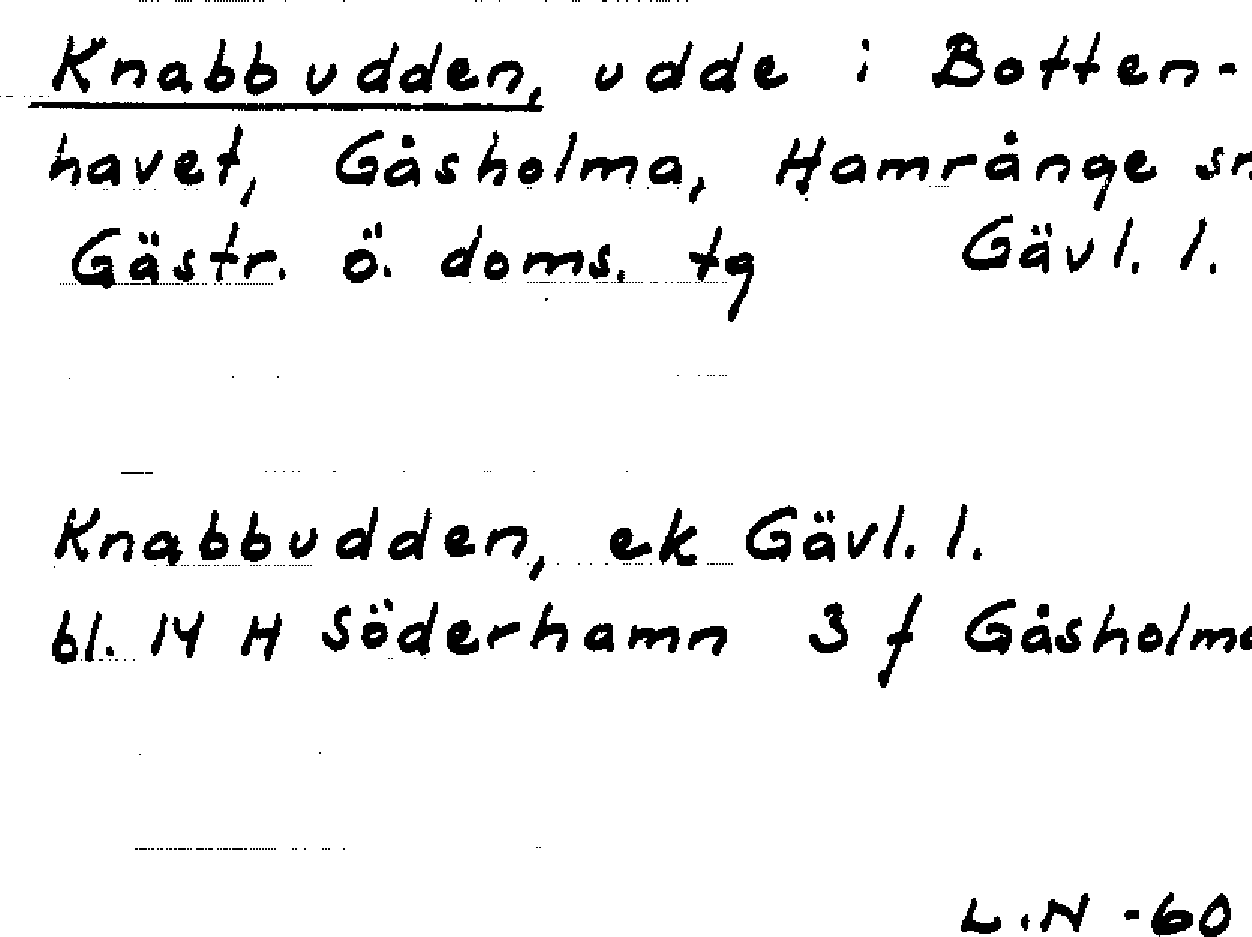 Knabbudden, udde i Botten-
havet, Gåsholma, Hamrånge sn
Gästr. ö. doms. tg Gävl. l.
Knabbudden, ek Gävl. l.
bl. 14 H Söderhamn 3 f Gåsholma
L.N -60